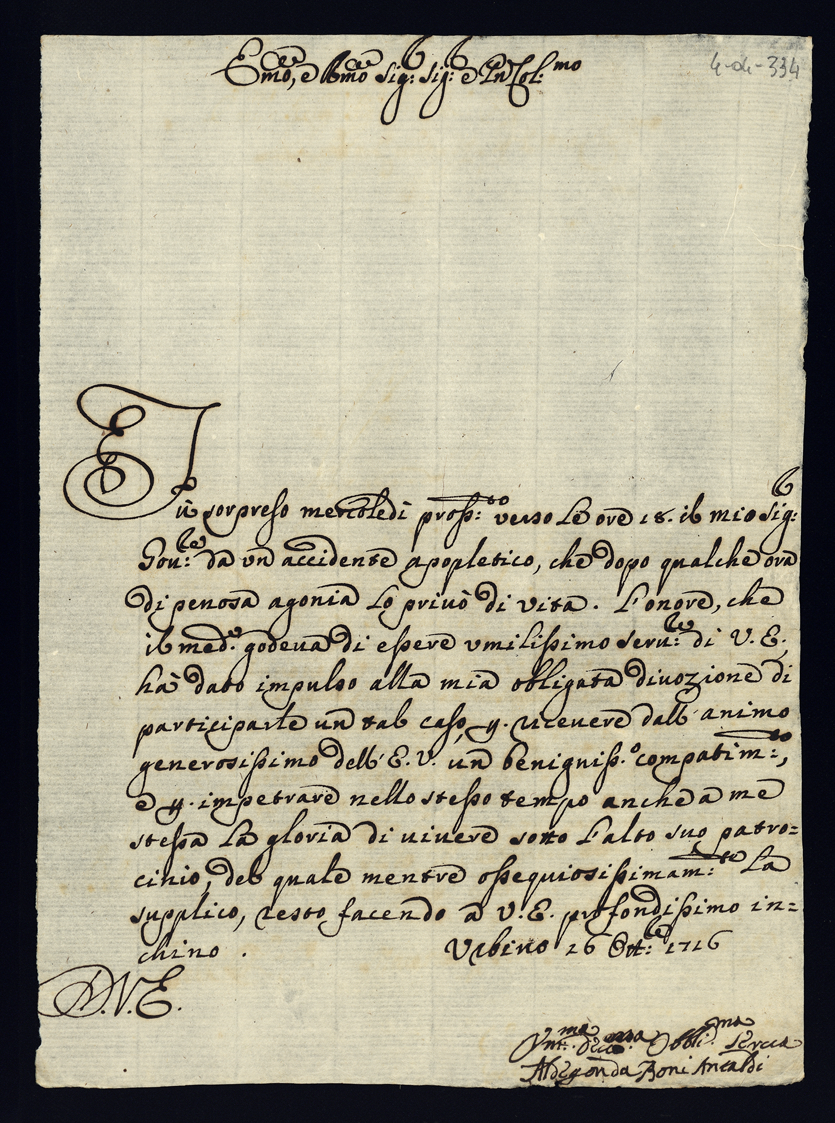 Em̃o, e Rm̃o Sig: Sig: e Pn̄ Col:mo
4-04-334
E
Fù sorpreso mercoledi pross:to verso le ore 18. il mio Sig:
Gou:le da vn accidente apopletico, che dopo qualche ora
di penosa agonia lo priuò di vita. L'onore, che
il med.o godeua di essere vmilissimo seru:le di V. E.
hà dato impulso alla mia obligata diuozione di
participarle un tal caso, p. riceuere dall'animo
generosissimo dell'E. V. un benigniss.o compatim:to,
e p. impetrare nello stesso tempo anche a me
stessa la gloria di uiuere sotto l'alto suo patro=
cinio, del quale mentre ossequiosissimam:te la
supplico, resto facendo a V. E. profondissimo in=
chino. Vrbino 16 Ott:e 1716
D. V. E.
Obbli.ma Serua
Aldegonda Boni Ancaldi